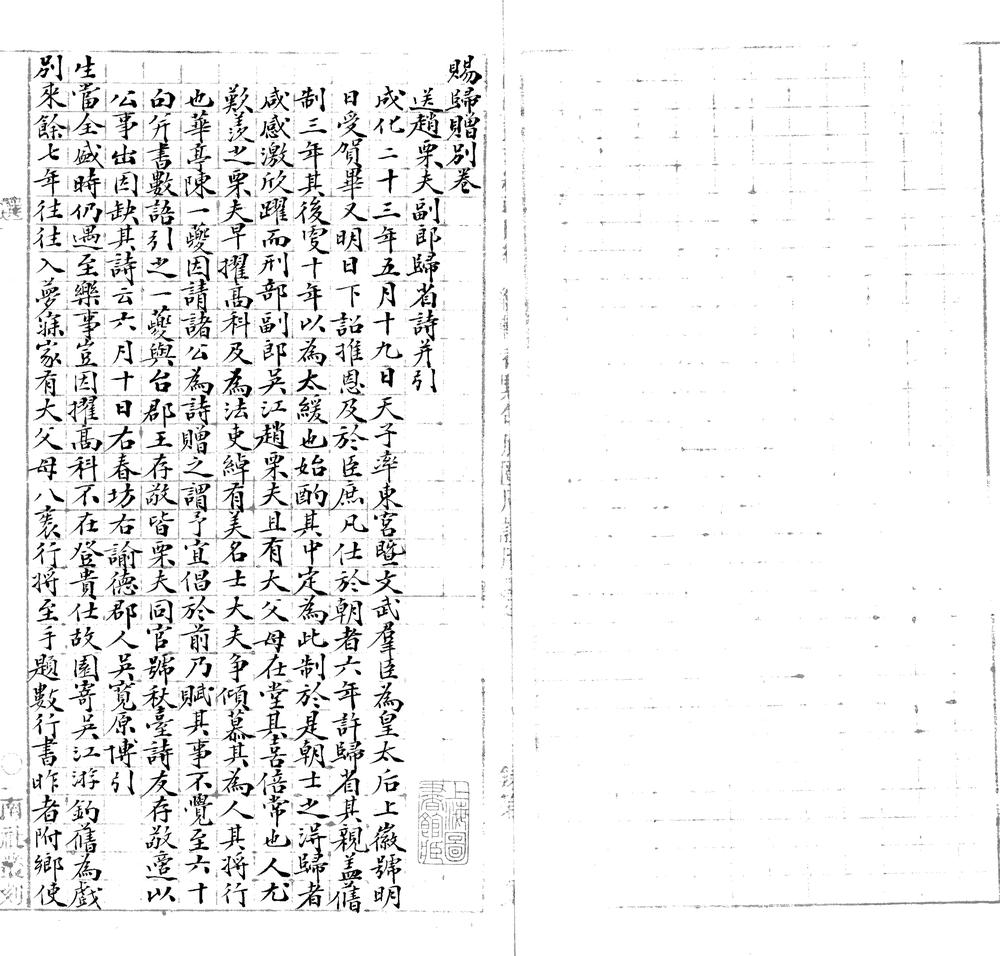 賜歸贈別卷
送趙栗夫副郎歸省詩并引
成化二十三年五月十九日天子率東宮暨文武羣臣為皇太后上徽號明
日受賀畢又明日下詔推恩及於臣庶凡仕於朝者六年許歸省其親盖舊
制三年其後更十年以為太緩也始酌其中定為此制於是朝士之得歸者
咸感激欣躍而刑部副郎吳江趙栗夫且有大父母在堂其喜倍常也人尤
歎羨之栗夫早擢高科及為法吏綽有美名士大夫争傾慕其為人其將行
也華亭陳一夔因請諸公為詩贈之謂予宜倡於前乃賦其事不覺至六十
句并書數語引之一夔與台郡王存敬皆栗夫同官號秋臺詩友存敬適以
公事出因缺其詩云六月十日右春坊右諭德郡人吳寬原博引
生當全盛時仍遇至樂事豈因擢高科不在登貴仕故園寄吳江游釣舊為戲
別來餘七年往往入夢寐家有大父母八袠行將至手題數行書昨者附鄉使
上海圖
書館藏
南社叢刻